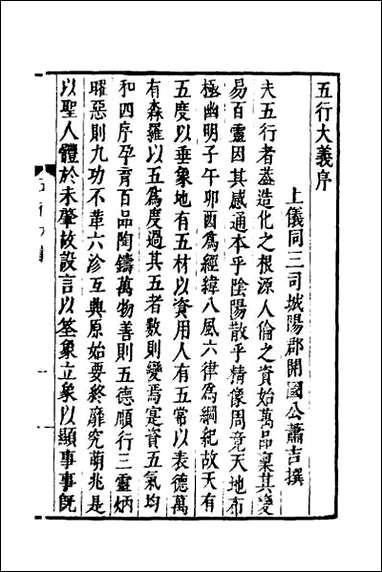 五行大義序
上儀同三司城陽郡開國公蕭吉撰
夫五行者蓋造化之根源人倫之資始萬品稟其變
易百靈因其感通本乎陰陽散乎精像周竟天地布
極幽明子午卯酉爲經緯八風六律爲綱紀故天有
五度以垂象地有五材以資用人有五常以表德萬
有森羅以五爲度過其五者數則變焉寔資五氣均
和四序孕育百品陶鑄萬物善則五德順行三靈炳
曜惡則九功不革六沴互興原始要終靡究萌兆是
以聖人體於未肇故設言以筌象立象以顯事事旣